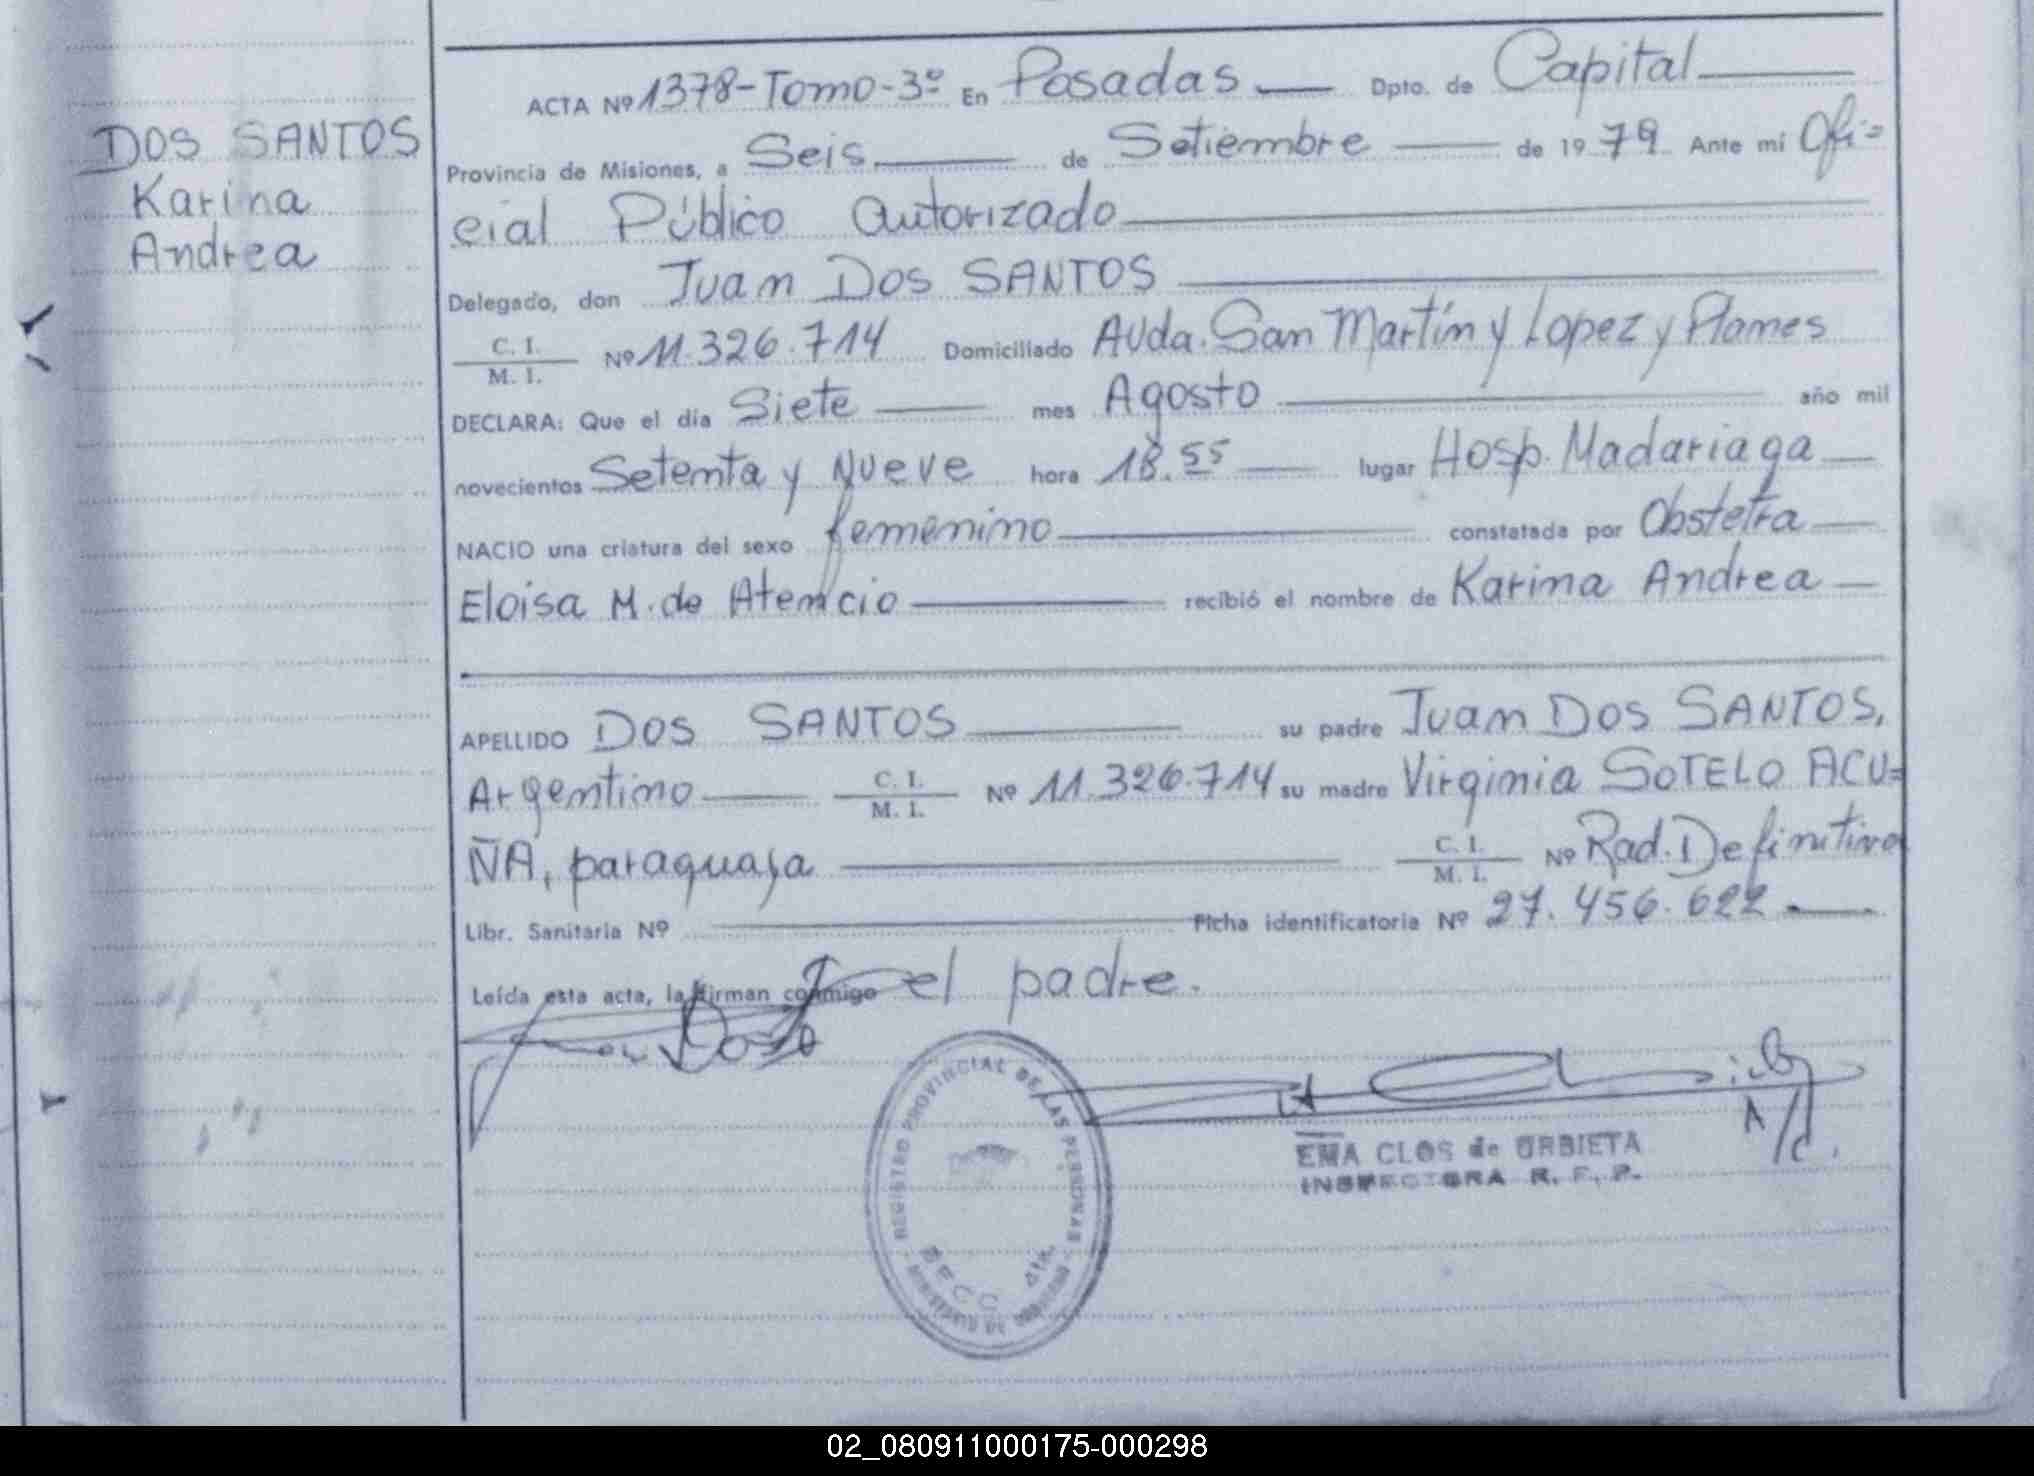 DOS SANTOS
Karina
Andrea
ACTA Nº 1378-Tomo-3º En Posadas Dpto. de Capital
Provincia de Misiones, a Seis de Setiembre de 1979 Ante mí Ofi=
cial Público Autorizado
Delegado, don Juan DOS SANTOS
C. I.
M. I. Nº 11.326.714 Domiciliado Avda. San Martín y Lopez y Planes
DECLARA: Que el día Siete mes Agosto año mil
novecientos Setenta y Nueve hora 18.55 lugar Hosp. Madariaga
NACIO una criatura del sexo femenino constatada por Obstetra
Eloisa M. de Atencio recibió el nombre de Karina Andrea
APELLIDO DOS SANTOS su padre Juan DOS SANTOS,
Argentino C. I. M. I. Nº 11.326.714 su madre Virginia SOTELO ACU=
ÑA, paraguaya C. I. M. I. Nº Rad. Definitiva
Libr. Sanitaria Nº Ficha identificatoria Nº 27.456.622
Leída esta acta, la firman conmigo el padre.
REGISTRO PROVINCIAL DE LAS PERSONAS
EMA CLOS de URBIETA
INSPECTORA R. F. P.
02_080911000175-000298